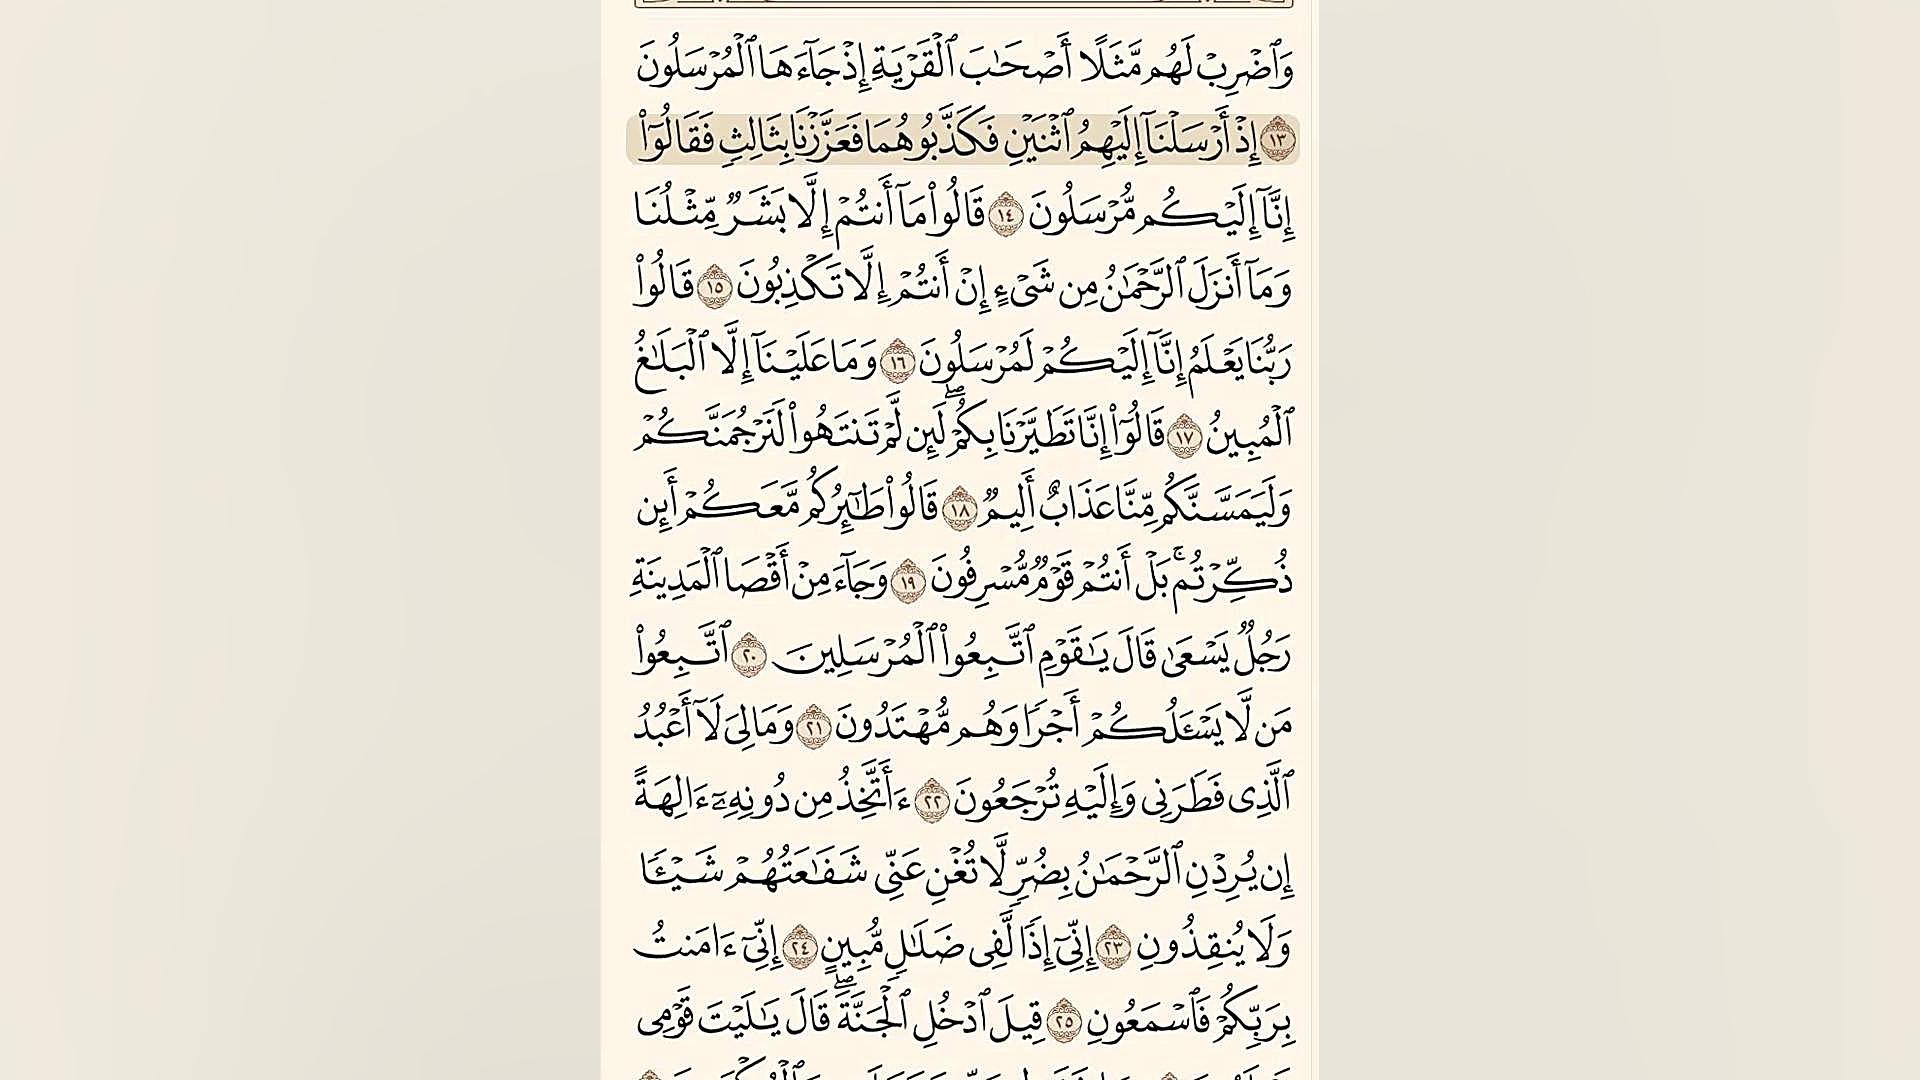 وَٱضْرِبْ لَهُم مَّثَلًا أَصْحَٰبَ ٱلْقَرْيَةِ إِذْ جَآءَهَا ٱلْمُرْسَلُونَ
١٣ إِذْ أَرْسَلْنَآ إِلَيْهِمُ ٱثْنَيْنِ فَكَذَّبُوهُمَا فَعَزَّزْنَا بِثَالِثٍ فَقَالُوٓا۟
إِنَّآ إِلَيْكُم مُّرْسَلُونَ ١٤ قَالُوا۟ مَآ أَنتُمْ إِلَّا بَشَرٌ مِّثْلُنَا
وَمَآ أَنزَلَ ٱلرَّحْمَٰنُ مِن شَىْءٍ إِنْ أَنتُمْ إِلَّا تَكْذِبُونَ ١٥ قَالُوا۟
رَبُّنَا يَعْلَمُ إِنَّآ إِلَيْكُمْ لَمُرْسَلُونَ ١٦ وَمَا عَلَيْنَآ إِلَّا ٱلْبَلَٰغُ
ٱلْمُبِينُ ١٧ قَالُوٓا۟ إِنَّا تَطَيَّرْنَا بِكُمْ ۖ لَئِن لَّمْ تَنتَهُوا۟ لَنَرْجُمَنَّكُمْ
وَلَيَمَسَّنَّكُم مِّنَّا عَذَابٌ أَلِيمٌ ١٨ قَالُوا۟ طَٰٓئِرُكُم مَّعَكُمْ أَئِن
ذُكِّرْتُم ۚ بَلْ أَنتُمْ قَوْمٌ مُّسْرِفُونَ ١٩ وَجَآءَ مِنْ أَقْصَا ٱلْمَدِينَةِ
رَجُلٌ يَسْعَىٰ قَالَ يَٰقَوْمِ ٱتَّبِعُوا۟ ٱلْمُرْسَلِينَ ٢٠ ٱتَّبِعُوا۟
مَن لَّا يَسْـَٔلُكُمْ أَجْرًا وَهُم مُّهْتَدُونَ ٢١ وَمَا لِىَ لَآ أَعْبُدُ
ٱلَّذِى فَطَرَنِى وَإِلَيْهِ تُرْجَعُونَ ٢٢ ءَأَتَّخِذُ مِن دُونِهِۦٓ ءَالِهَةً
إِن يُرِدْنِ ٱلرَّحْمَٰنُ بِضُرٍّ لَّا تُغْنِ عَنِّى شَفَٰعَتُهُمْ شَيْـًٔا
وَلَا يُنقِذُونِ ٢٣ إِنِّىٓ إِذًا لَّفِى ضَلَٰلٍ مُّبِينٍ ٢٤ إِنِّىٓ ءَامَنتُ
بِرَبِّكُمْ فَٱسْمَعُونِ ٢٥ قِيلَ ٱدْخُلِ ٱلْجَنَّةَ ۖ قَالَ يَٰلَيْتَ قَوْمِى